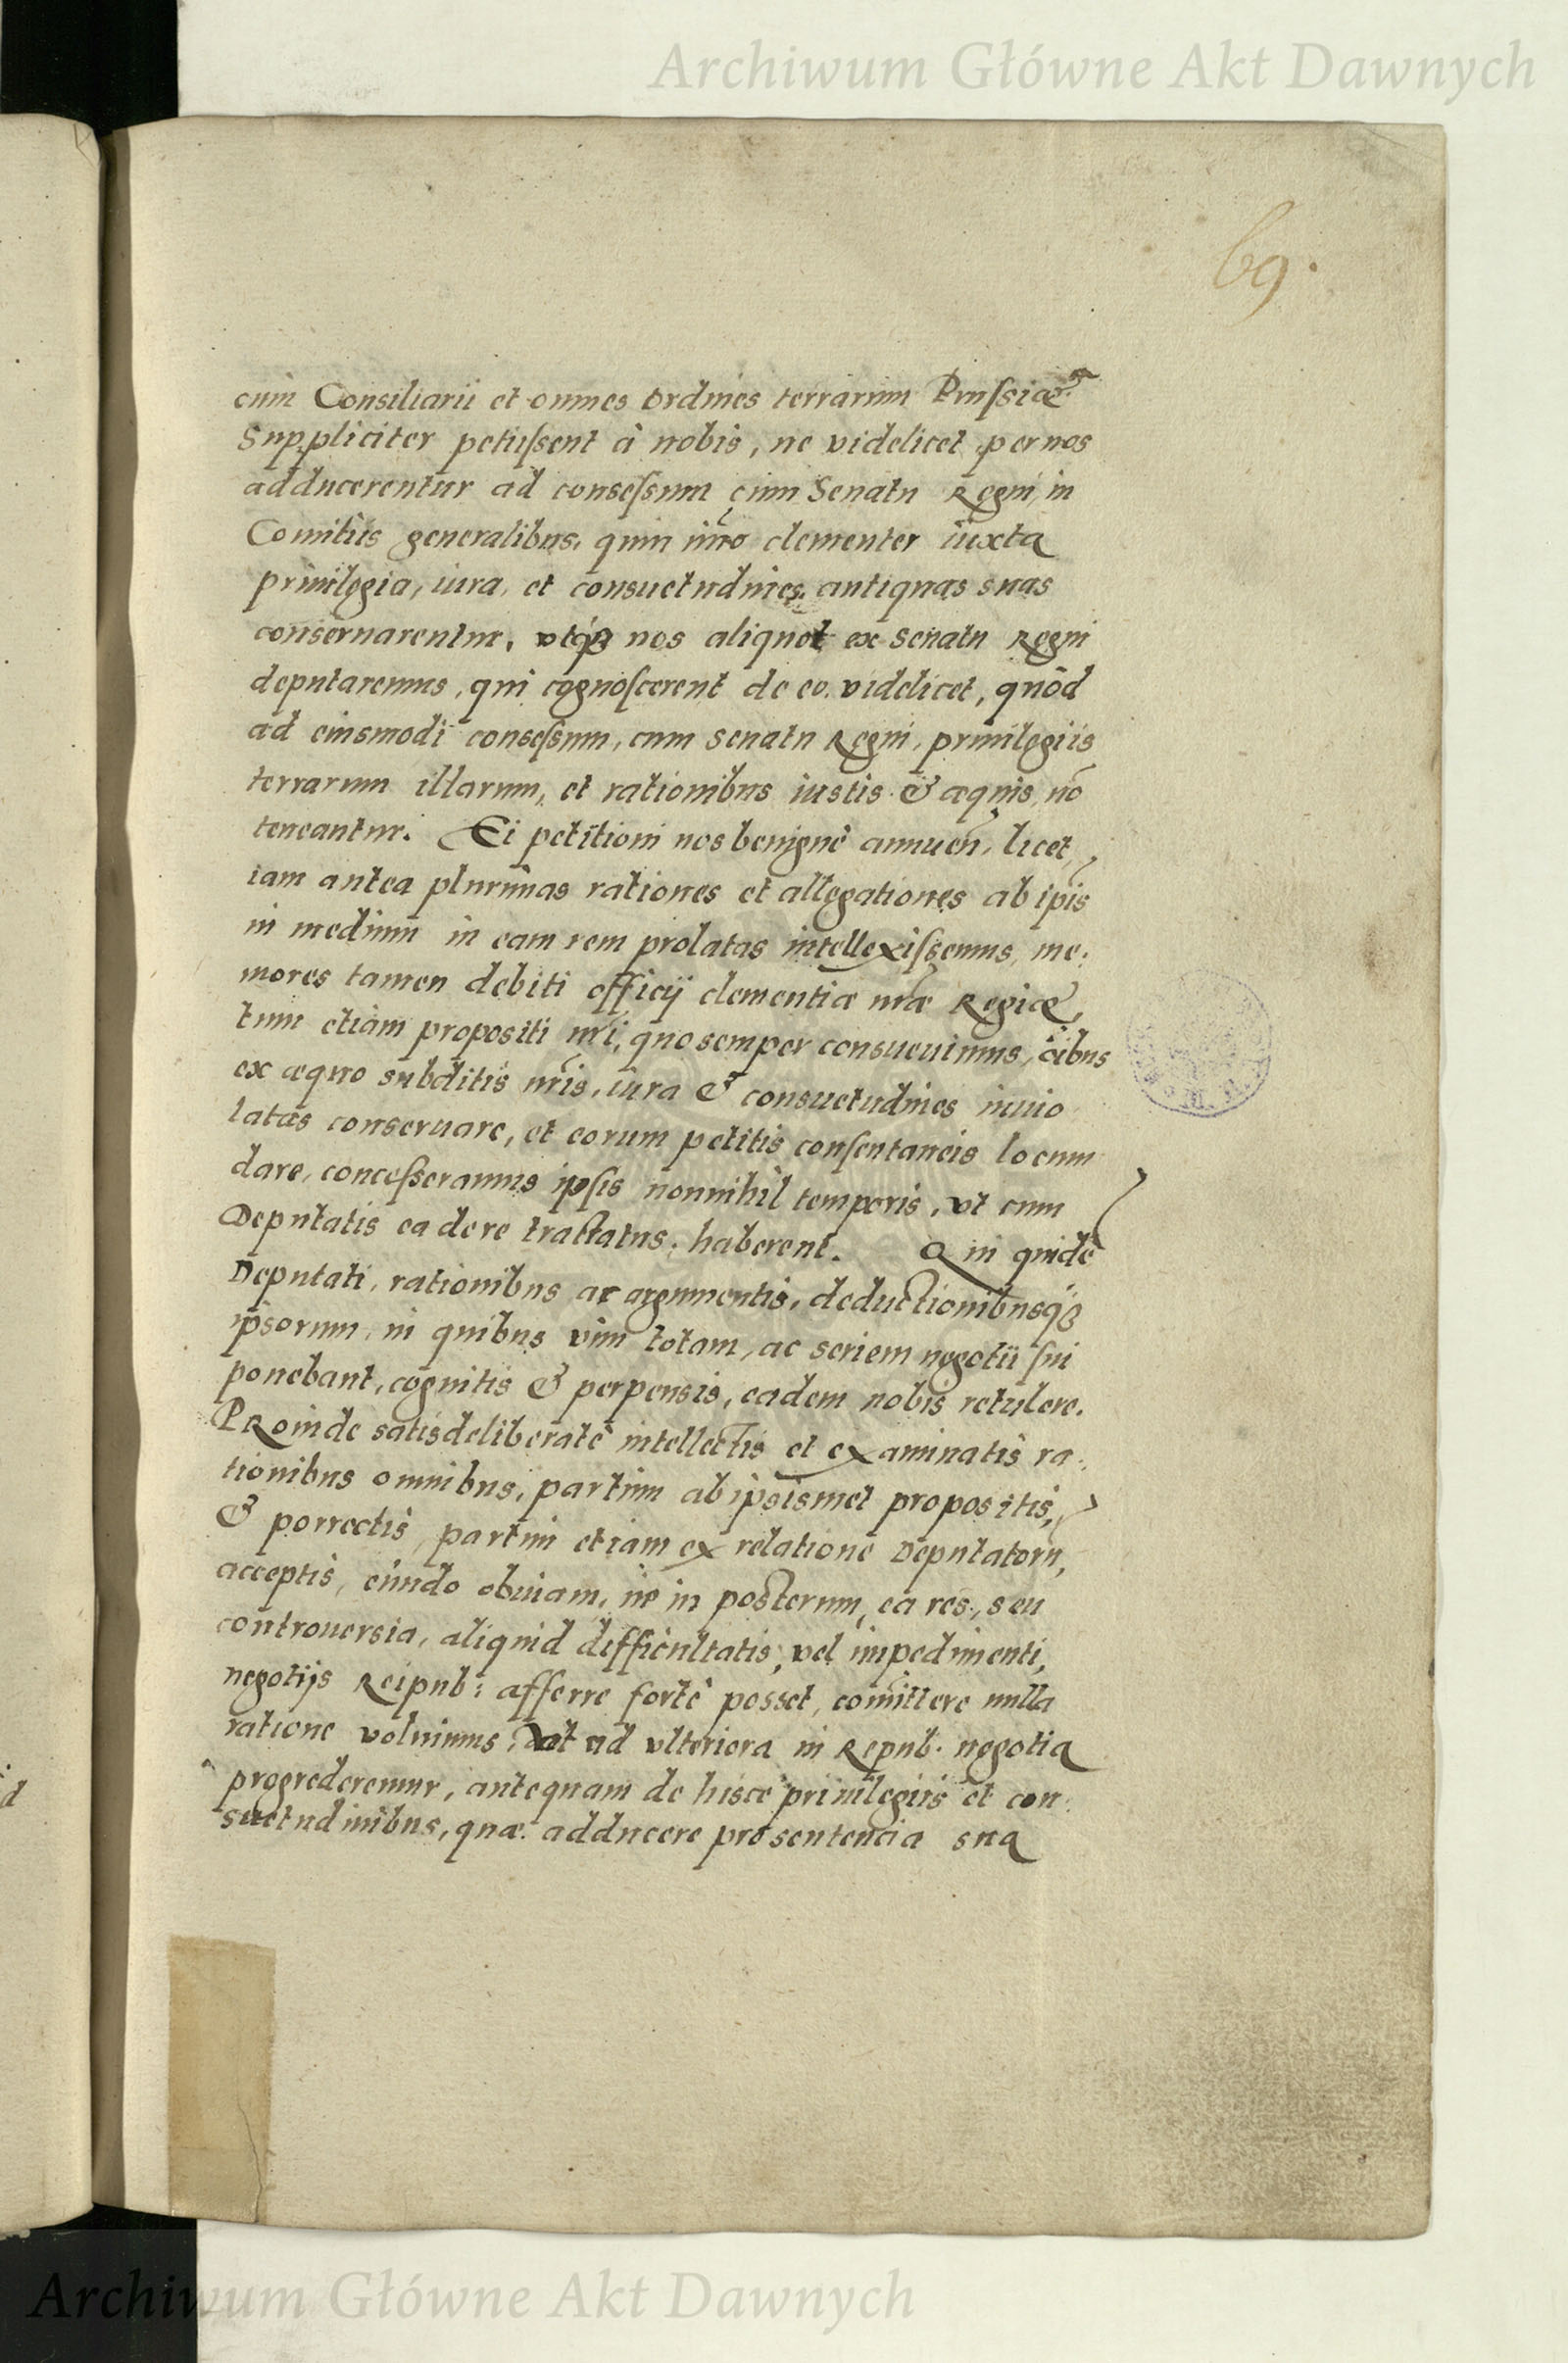 Archiwum Główne Akt Dawnych
69.
cum Consiliarii et omnes Ordines terrarum Prussiæ
Suppliciter petiissent à nobis, ne videlicet per nos
adducerentur ad consessum cum Senatu Regni, in
Comitiis generalibus, quin imo clementer iuxta
privilegia, iura, et consuetudines antiquas suas
conservarentur, utq3 nos aliquot ex Senatu Regni
deputaremus, qui cognoscerent de eo videlicet, quòd
ad eiusmodi consessum, cum Senatu Regni, privilegiis
terrarum illarum, et rationibus iustis & æquis, nō
teneantur. Ei petitioni nos benignè annuen̄, licet
iam antea plurimas rationes et allegationes ab ip̄is
in medium in eam rem prolatas intellexissemus, me:
mores tamen debiti officij clementiæ nr̄æ Regiæ,
tum etiam propositi nr̄i, quo semper consuevimus, oībus
ex æquo subditis nr̄is, iura & consuetudines invio
latas conservare, et eorum petitis consentaneis locum
dare, concesseramus ipsis nonnihil temporis, vt cum
Deputatis ea de re tractatus haberent. Qui quidē
Deputati, rationibus ac argumentis, deductionibusq3
ipsorum, in quibus vim totam, ac seriem negotii sui
ponebant, cognitis & perpensis, eadem nobis retulere.
PRoinde satis deliberatè intellectis et examinatis ra:
tionibus omnibus, partim ab ipsismet propositis,
& porrectis, partim etiam ex relatione Deputatorū,
acceptis, eundo obviam, ne in posterum, ea res, seu
controversia, aliquid difficultatis, vel impedimenti,
negotijs Reipub: afferre fortè posset, com̄ittere nulla
ratione voluimus, vt ad vlteriora in Repub. negotia
progrederemur, antequam de hisce privilegiis et con:
suetudinibus, quæ adducere pro sentencia sua
Archiwum Główne Akt Dawnych